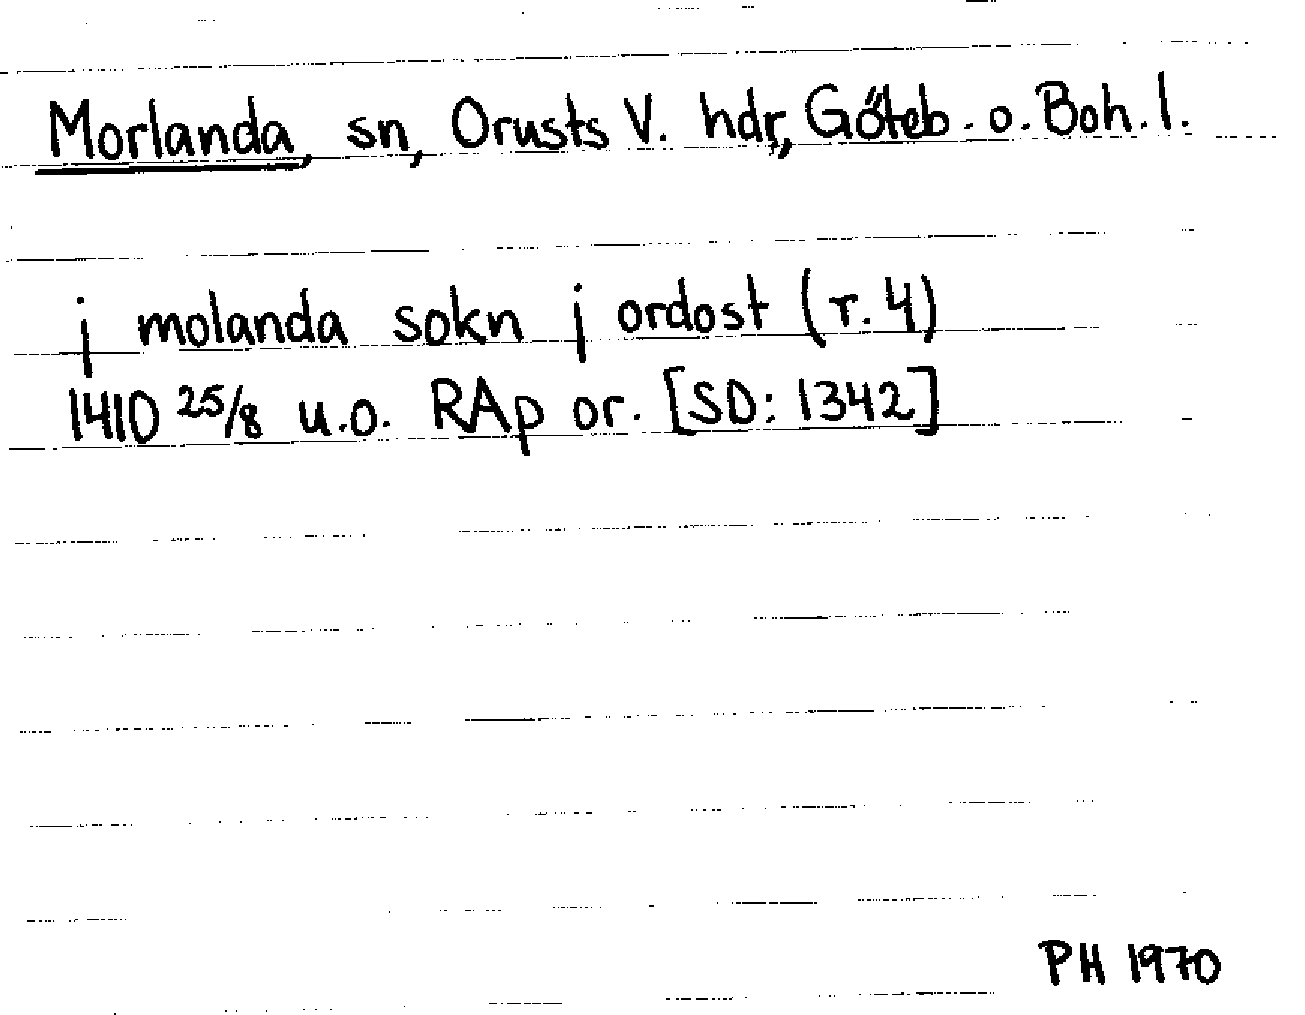 Morlanda, sn, Orusts V. hdr, Göteb. o. Boh. l.
j molanda sokn j ordost (r. 4)
1410 25/8 u.o. RAp or. [SD: 1342]
PH 1970